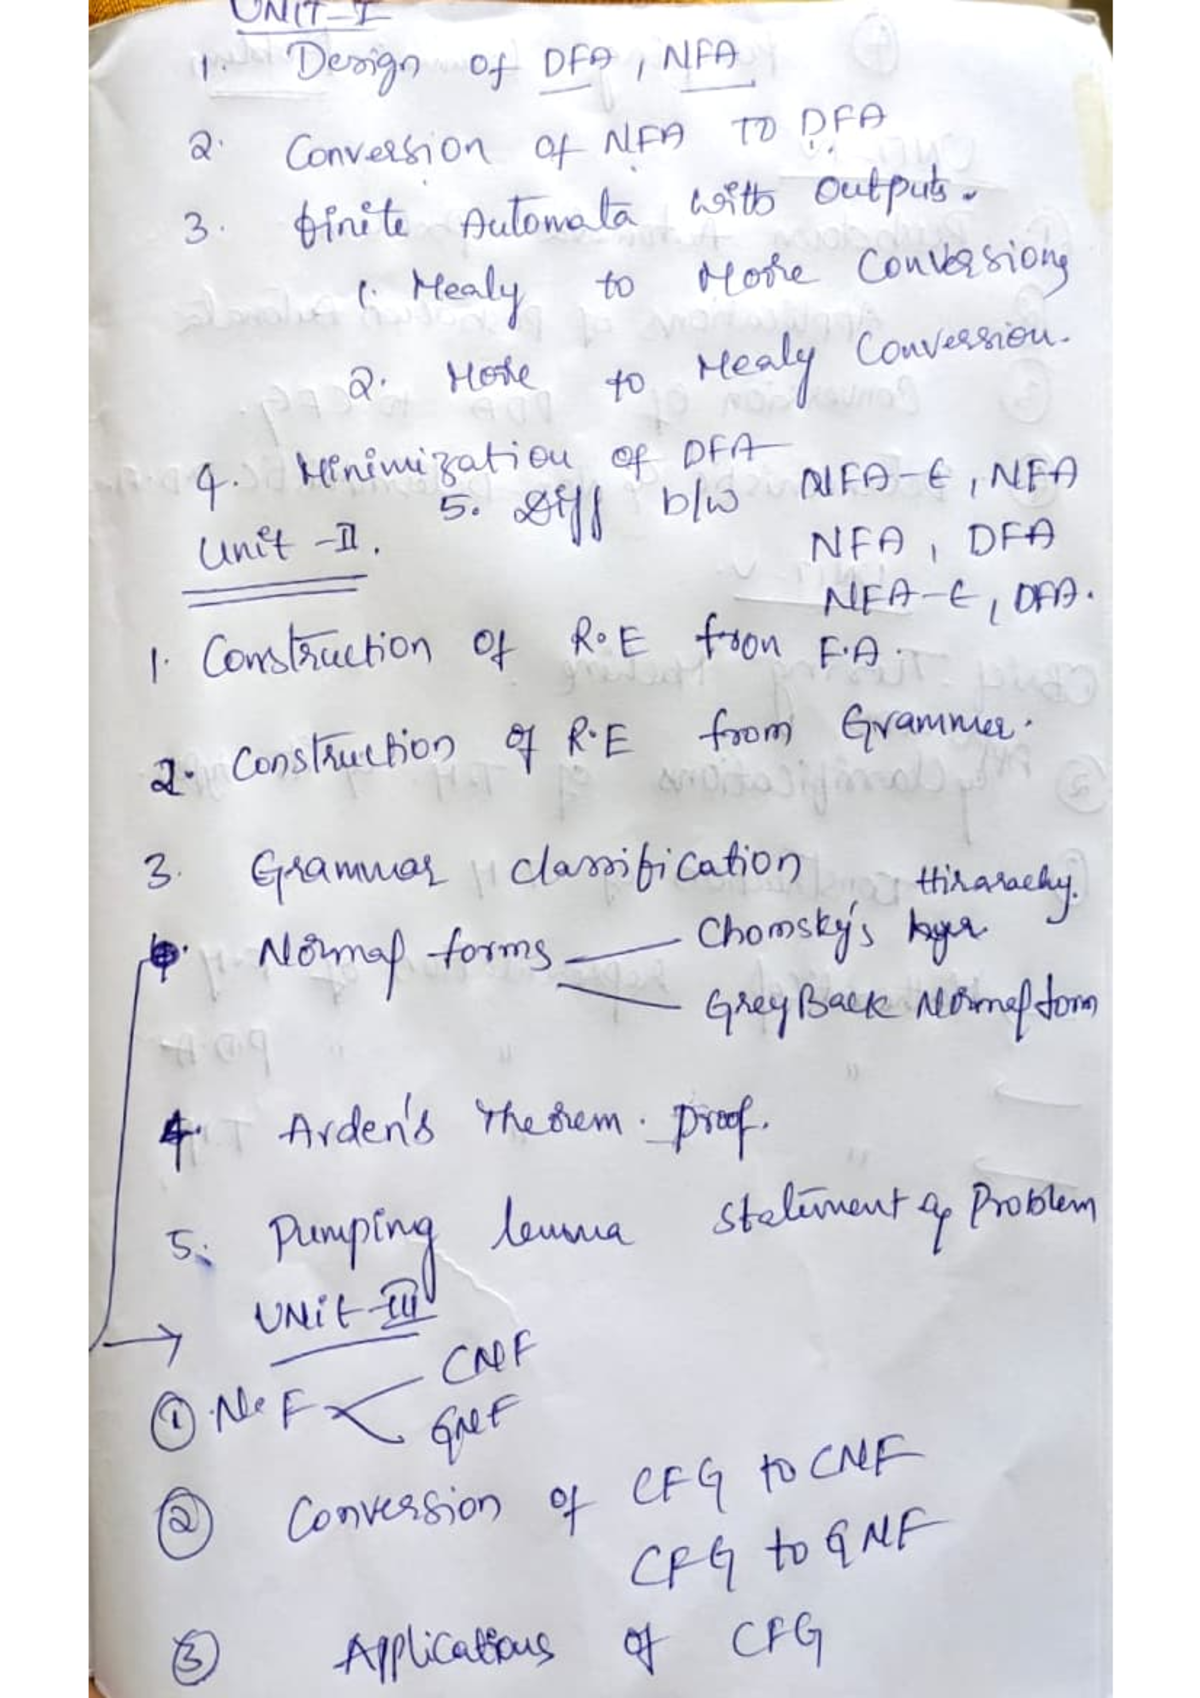 UNIT-I
1. Design of DFA, NFA
2. Conversion of NFA TO DFA
3. finite Automata with outputs.
1. Mealy to Moore Conversions
2. Moore to Mealy Conversion.
4. Minimization of DFA
5. Diff b/w NFA-ε, NFA
NFA, DFA
NFA-ε, DFA.
Unit-II.
1. Construction of R.E from F.A.
2. Construction of R.E from Grammer.
3. Grammar classification
Hirarachy.
Normal forms Chomsky's
GreyBack Normal form
4. Arden's Theorem. Proof.
5. Pumping lemma statement & Problem
UNit-III
1 N.F CNF
GNF
2 Conversion of CFG to CNF
CFG to GNF
3 Applications of CFG